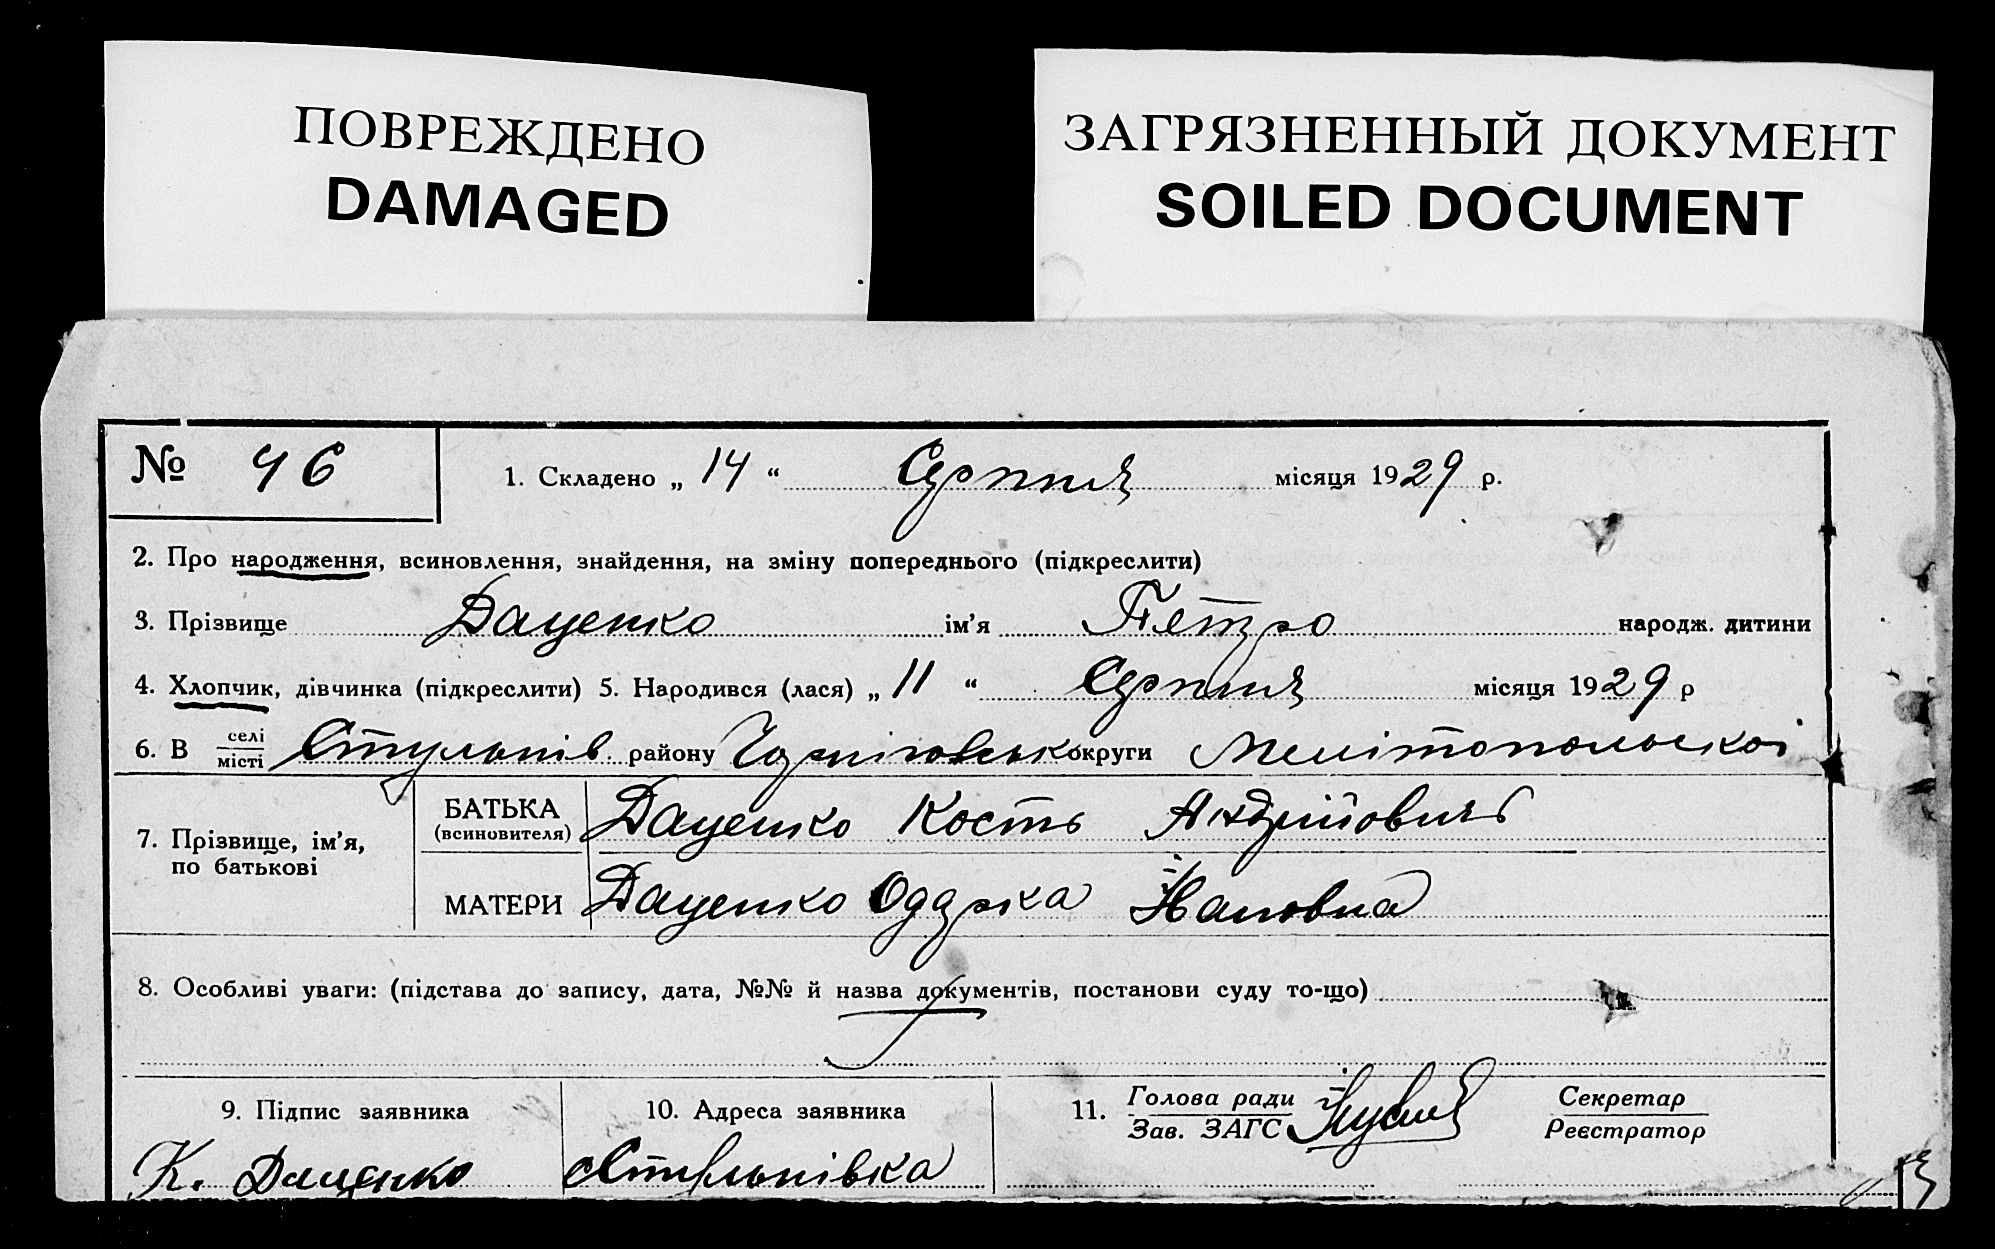 ПОВРЕЖДЕНО
DAMAGED
ЗАГРЯЗНЕННЫЙ ДОКУМЕНТ
SOILED DOCUMENT
№ 46 1. Складено „ 14 “ Серпня місяця 1929 р.
2. Про народження, всиновлення, знайдення, на зміну попереднього (підкреслити)
3. Прізвище Даценко ім’я Петро народж. дитини
4. Хлопчик, дівчинка (підкреслити) 5. Народився (лася) „ 11 “ Серпня місяця 1929 р
6. В селі місті району округи Мелітопольскої
7. Прізвище, ім’я, по батькові
БАТЬКА (всиновителя) Даценко Кость Андрійович
МАТЕРИ Даценко Одарка
8. Особливі уваги: (підстава до запису, дата, №№ й назва документів, постанови суду то-що)
9. Підпис заявника 10. Адреса заявника 11. Голова ради Зав. ЗАГС Секретар Реєстратор
К. Даценко